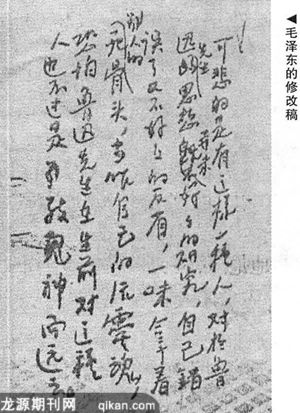 ◀毛泽东的修改稿
可悲的是有这样一种人，对于鲁
迅先生的思想并未好好的研究，自己错
误了又不好好的反省，一味含着
别人的死骨头，当做自己的灵魂，
恐怕鲁迅先生在生前对这种
人也不过是敬鬼神而远之
龙源期刊网 qikan.com